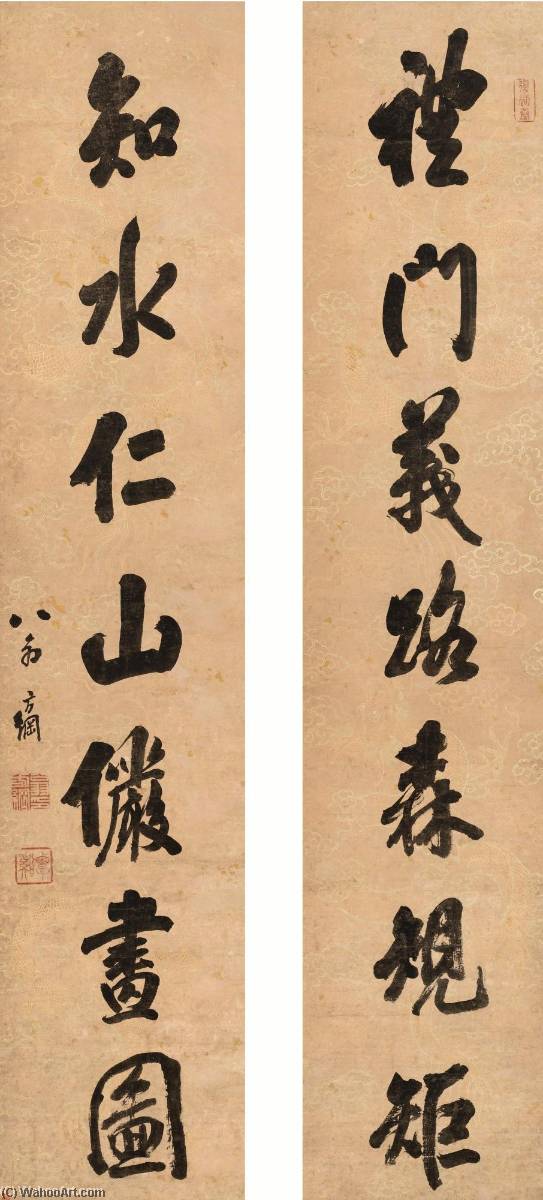 禮門義路森規矩
知水仁山儼畫圖
翁方綱
(C) WahooArt.com